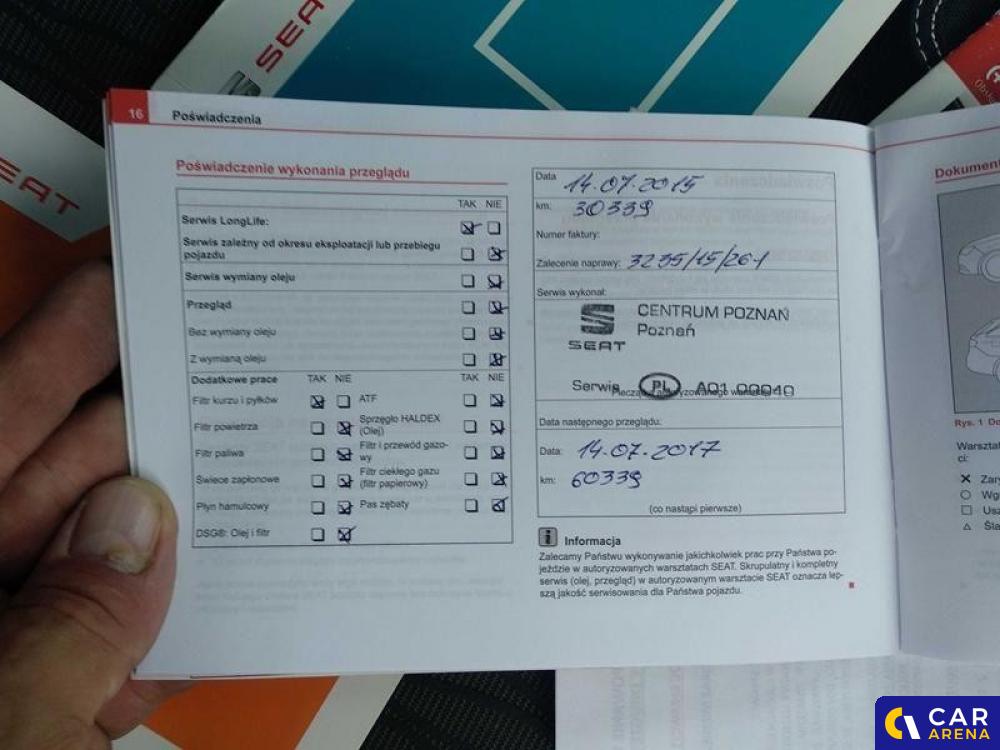 SEAT
SEAT
16 Poświadczenia
Poświadczenie wykonania przeglądu
TAK NIE
Serwis LongLife:
Serwis zależny od okresu eksploatacji lub przebiegu
pojazdu
Serwis wymiany oleju
Przegląd
Bez wymiany oleju
Z wymianą oleju
Dodatkowe prace TAK NIE TAK NIE
Filtr kurzu i pyłków
ATF
Filtr powietrza
Sprzęgło HALDEX
(Olej)
Filtr paliwa
Filtr i przewód gazo-
wy
Świece zapłonowe
Filtr ciekłego gazu
(filtr papierowy)
Płyn hamulcowy
Pas zębaty
DSG®: Olej i filtr
Data 14.07.2015
km: 30339
Numer faktury:
Zalecenie naprawy: 3235/15/261
Serwis wykonał:
SEAT
CENTRUM POZNAŃ
Poznań
Serwis PL A01 00040
Data następnego przeglądu:
Data: 14.07.2017
km: 60339
(co nastąpi pierwsze)
i Informacja
Zalecamy Państwu wykonywanie jakichkolwiek prac przy Państwa po-
jeździe w autoryzowanych warsztatach SEAT. Skrupulatny i kompletny
serwis (olej, przegląd) w autoryzowanym warsztacie SEAT oznacza lep-
szą jakość serwisowania dla Państwa pojazdu.
Rys. 1
ci:
CAR
ARENA